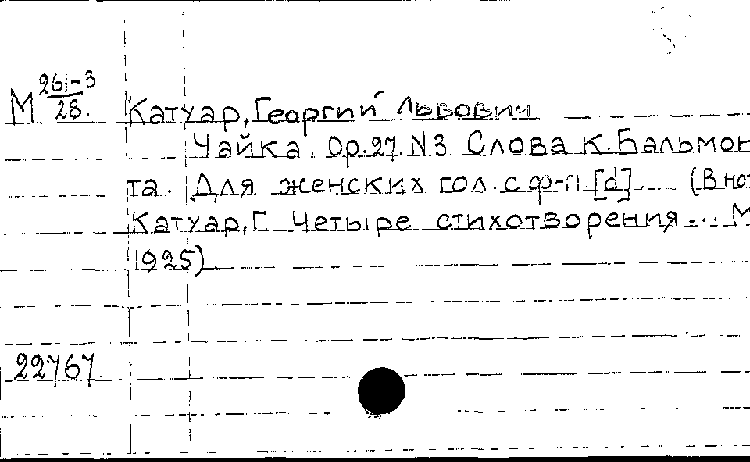 М 26i-3/28. Катуар, Георгий Львович
Чайка. Ор.27. N3 Слова К. Бальмон
та. Для женских гол. с ф-п [d] (В нот
Катуар, Г. Четыре стихотворения... М
1925)
22767